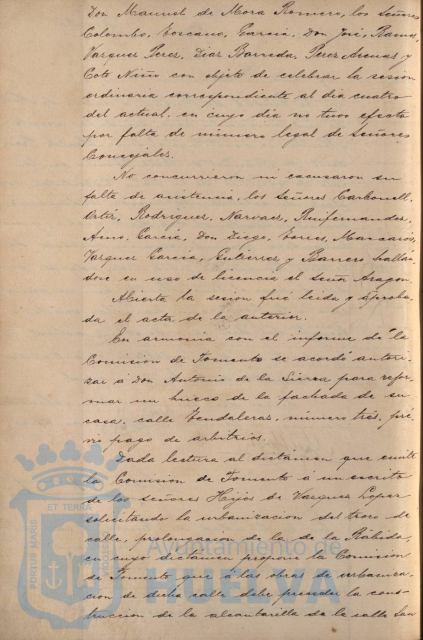 Don Manuel de Mora Romero, los Señores
Colombo, Toscano, García, Don José, Ramos,
Vazquez Perez, Diaz Barreda, Perez Arenas y
Coto Niño con objeto de celebrar la sesion
ordinaria correspondiente al dia cuatro
del actual, en cuyo dia no tuvo efecto
por falta de número legal de Señores
Concejales.
No concurrieron ni escusaron su
falta de asistencia, los Señores Carbonell,
Ortiz, Rodriguez, Narvaez, Ruifernandez,
García, Don Diego, Torres,
Vazquez García, Gutierrez y Barrero hallan
dose en uso de licencia el Señor Aragon.
Abierta la sesion fué leida y aproba-
da el acta de la anterior.
En armonia con el informe de la
Comision de Fomento se acordó autori-
zar á Don Antonio de la Sierra para refor-
mar un hueco de la fachada de su
casa, calle Vendaleras, número tres, pré-
vio pago de arbitrios.
Dada lectura al dictámen que emite
la Comision de Fomento á un escrito
de los señores Hijos de Vazquez Lopez
solicitando la urbanizacion del trozo de
calle, prolongacion de la de la Rábida,
en cuyo dictamen propone la Comision
de Fomento que á las obras de urbaniza-
cion de dicha calle debe preceder la cons-
truccion de la alcantarilla de la calle San
PORTUS MARIS
ET TERRA
CUSTODIA
Ayuntamiento de
HUELVA